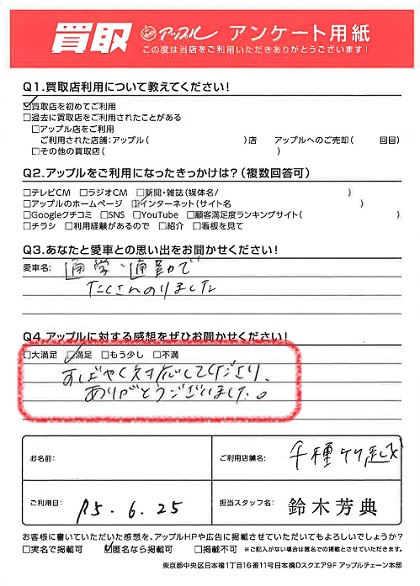 買取 アップル アンケート用紙
この度は当店をご利用いただきありがとうございます!
Q1.買取店利用について教えてください!
☑買取店を初めてご利用
□過去に買取店をご利用されたことがある
□アップル店をご利用
ご利用された店舗:アップル( )店 アップルへのご売却( 回目)
□その他の買取店( )
Q2.アップルをご利用になったきっかけは?(複数回答可)
□テレビCM □ラジオCM □新聞・雑誌(媒体名/ )
□アップルのホームページ ☑インターネット(サイト名 )
□Googleクチコミ □SNS □YouTube □顧客満足度ランキングサイト( )
□チラシ □利用経験があるので □紹介 □看板を見て
Q3.あなたと愛車との思い出をお聞かせください!
愛車名: 通学・通勤で
たくさんのりました
Q4.アップルに対する感想をぜひお聞かせください!
□大満足 ☑満足 □もう少し □不満
すばやく対応してくださり、
ありがとうございました。
お名前: ご利用店舗名: 千種
ご利用日: R5.6.25 担当スタッフ名: 鈴木芳典
お客様に書いていただいた感想を、アップルHPや広告に掲載させていただいてもよろしいでしょうか?
□実名で掲載可 ☑匿名なら掲載可 □掲載不可 ※ご記入がない場合は匿名での掲載とさせていただきます。
東京都中央区日本橋1丁目16番11号日本橋Dスクエア9F アップルチェーン本部